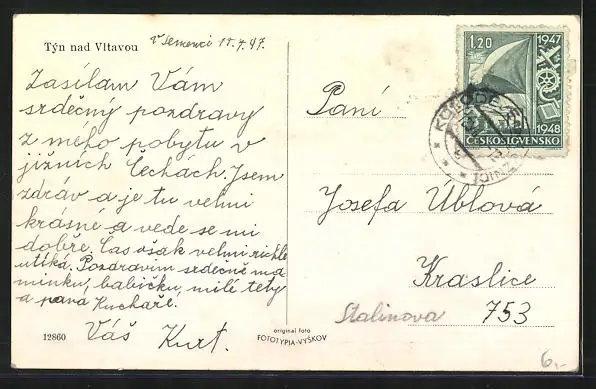 Týn nad Vltavou
v Semenci 15.7.47.
Zasílam Vám
srdečný pozdravy
z mého pobytu v
jižních Čechách. Jsem
zdráv a je tu velmi
krásné a vede se mi
dobře. Čas však velmi richle
utíká. Pozdravim srdečně ma
minku, babičku, milé tety
a pana Kuchaře.
Váš Kurt.
12860
original foto
FOTOTYPIA-VYŠKOV
1.20
1947
1948
ČESKOSLOVENSKO
KOLODĚJE
Paní
Josefa Üblová
Kraslice
Stalinova 753
6,-